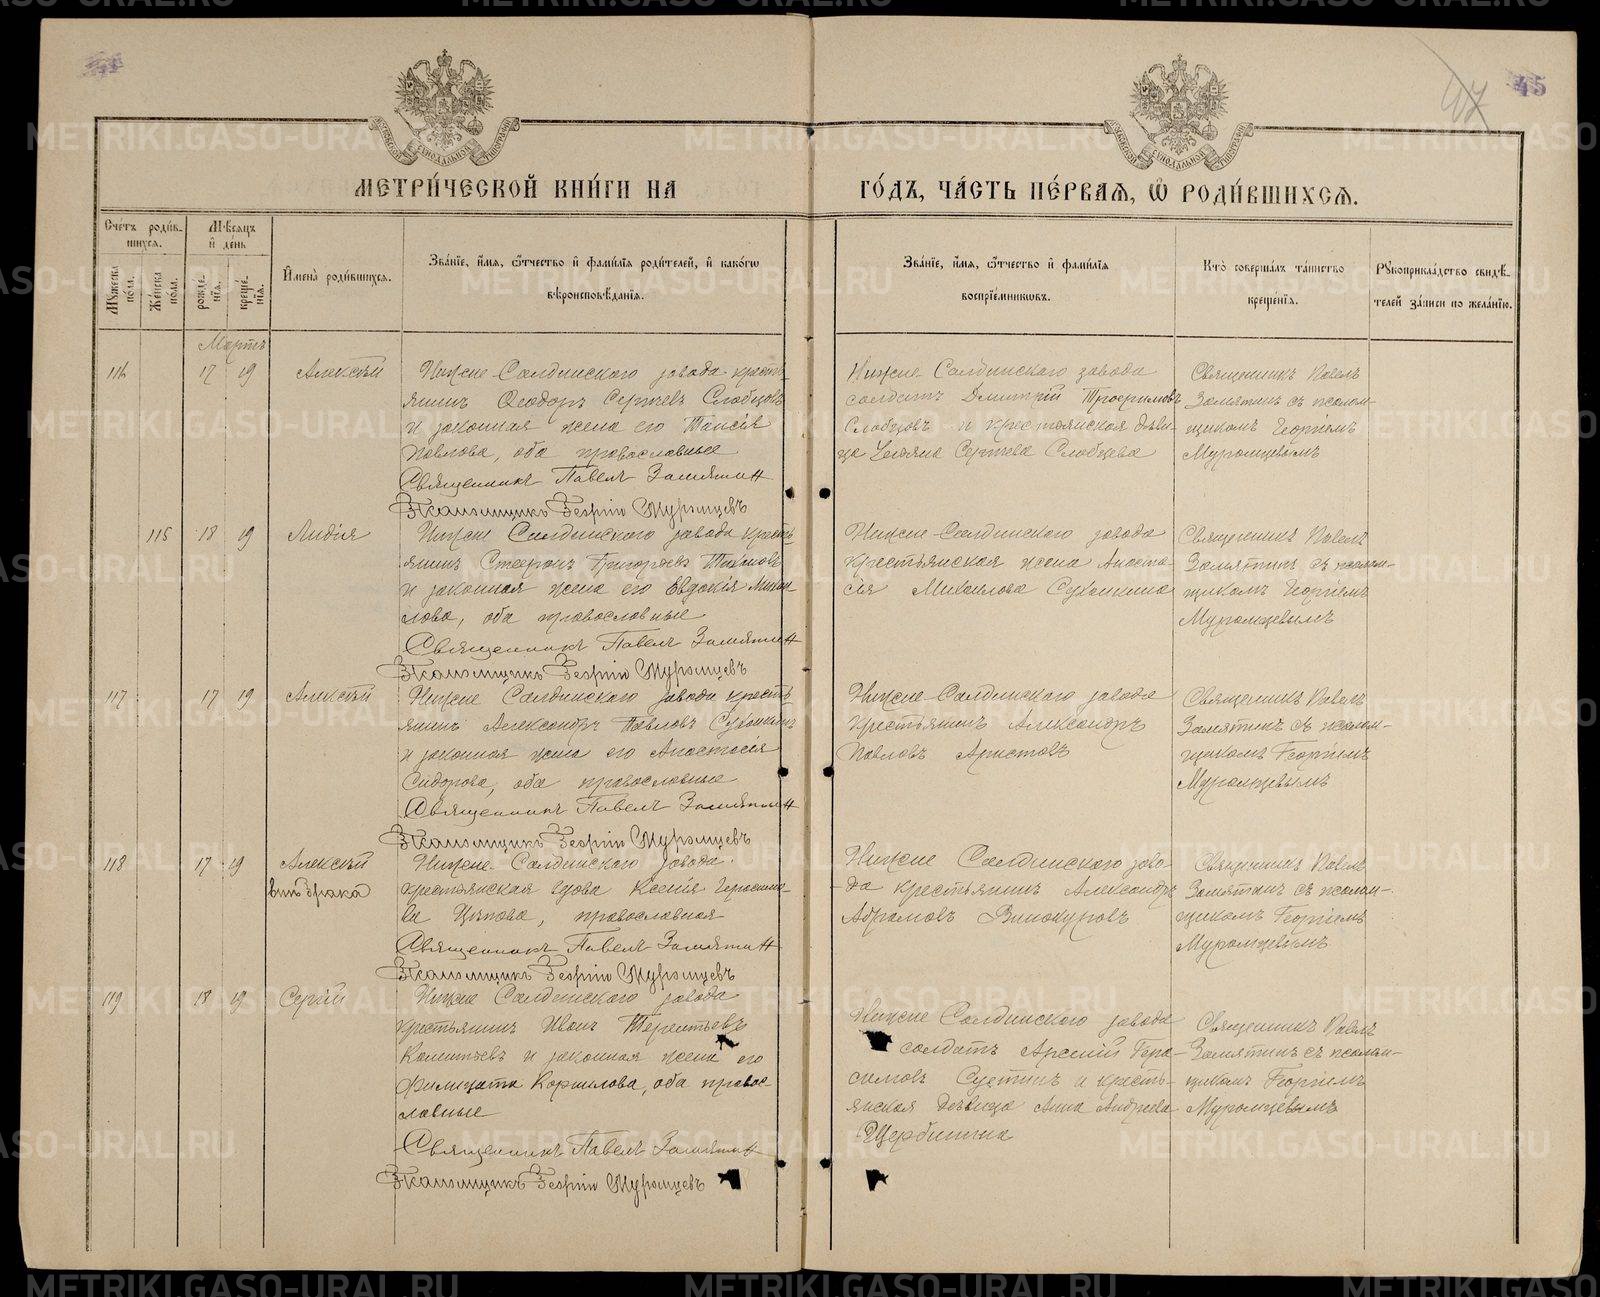 45
МЕТРИ́ЧЕСКОЙ КНИ́ГИ НА
ГО́ДЪ, ЧА́СТЬ ПЕ́РВАЯ, Ѿ РОДИ́ВШИХСЯ.
Сче́тъ роди́в-
шихся.
Мѣ́сяцъ
и҆ де́нь
Мꙋ́жеска
по́ла.
Же́нска
по́ла.
рожде́-
нїя.
креще́-
нїя.
И҆мена̀ роди́вшихся.
Зва́нїе, и҆́мя, ѻ҆́тчество и҆ фами́лїя роди́телей, и҆ како́гѡ
вѣроисповѣ́данїя.
Зва́нїе, и҆́мя, ѻ҆́тчество и҆ фами́лїя
воспрїе́мникѡвъ.
Кто̀ соверша́лъ та́инство
креще́нїя.
Рꙋкоприкла́дство свидѣ́-
телей за́писи по жела́нїю.
Мартъ
116 17 19 Алексѣй
Нижне-Салдинскаго завода кресть-
янинъ Ѳеодоръ Сергѣевъ Слобцовъ
и законная жена его Таисія
Павлова, оба православные
Священникъ Павелъ Замятин
Псаломщикъ Георгій Муромцевъ
Нижне Салдинскаго завода
солдатъ Дмитрій Трофимовъ
Слобцовъ и крестьянская дѣви-
ца Сергѣева Слобцева
Священникъ Павелъ
Замятинъ съ псалом-
щикомъ Георгіемъ
Муромцевымъ
115 18 19 Лидія
Нижне Салдинскаго завода кресть-
янинъ Стефанъ Григорьевъ
и законная жена его Евдокія Михаи-
лова, оба православные
Священникъ Павелъ Замятин
Псаломщикъ Георгій Муромцевъ
Нижне-Салдинскаго завода
крестьянская жена Анаста-
сія Михаилова
Священникъ Павелъ
Замятинъ съ псалом-
щикомъ Георгіемъ
Муромцевымъ
117 17 19 Алексѣй
Нижне Салдинскаго завода кресть-
янинъ Александръ Павловъ
и законная жена его Анастасія
Сидорова, оба православные
Священникъ Павелъ Замятин
Псаломщикъ Георгій Муромцевъ
Нижне-Салдинскаго завода
крестьянинъ Александръ
Павловъ Аристовъ
Священникъ Павелъ
Замятинъ съ псалом-
щикомъ Георгіемъ
Муромцевымъ
118 17 19 Алексѣй
внѣ брака
Нижне-Салдинскаго завода
крестьянская вдова Ксенія Герасимо-
ва Цыпова, православная
Священникъ Павелъ Замятин
Псаломщикъ Георгій Муромцевъ
Нижне Салдинскаго заво-
да крестьянинъ Александръ
Абрамовъ Винокуровъ
Священникъ Павелъ
Замятинъ съ псалом-
щикомъ Георгіемъ
Муромцевымъ
119 18 19 Сергій
Нижне Салдинскаго завода
крестьянинъ Иванъ Терентьевъ
и законная жена его
Филицата Корнилова, оба право-
славные
Священникъ Павелъ Замятин
Псаломщикъ Георгій Муромцевъ
Нижне Салдинскаго завода
солдатъ Арсеній Гера-
симовъ и кресть-
янская дѣвица Анна Андреева
Щербинина
Священникъ Павелъ
Замятинъ съ псалом-
щикомъ Георгіемъ
Муромцевымъ
METRIKI.GASO-URAL.RU